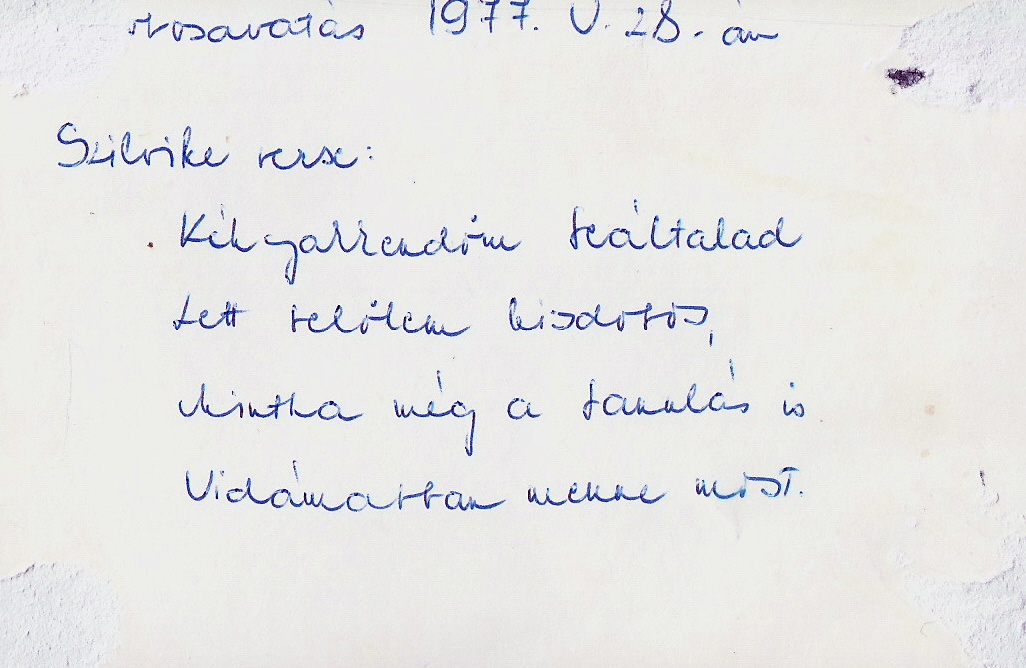 bosavatás 1977. V. 28.-án
Szilvike verse:
Kék nyakkendőm teáltalad
Lett belőlem kisdobos,
Mintha még a tanulás is
Vidámabban menne most.